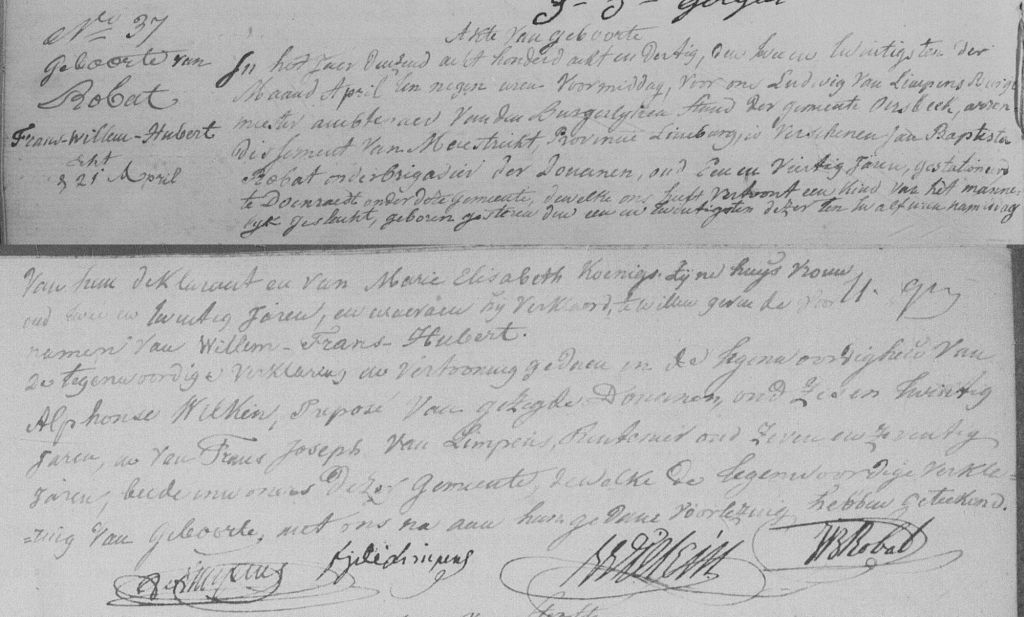 No 37
Geboorte van
Robat
Frans-Willem-Hubert
21 April
Akte van geboorte
In het jaer duizend acht honderd acht en dertig, den twee en twintigsten der
Maand April ten negen uren Voormiddag, voor ons Ludwig Van Limpens Burge
meester ambtenaer van den Burgerlyken Stand der gemeente Oirsbeek, arron
dissement Van Maestricht, Provincie Limburg, is verschenen Jan Baptesten
Robat onderbrigadier der Douanen, oud Een en Viertig Jaren, gestationeerd
te Doenraedt onder deze Gemeente, dewelke ons heeft vertoont een kind van het manne-
lyk geslacht, geboren gesteren den een en twintigsten dezer ten twalf uren namiddag
Van hem deklarant en van Marie Elisabeth Koenigs zyne huys vrouw
oud twee en twintig Jaren, en waeraen hy verklaert, te willen geven de voor
namen Van Willem-Frans-Hubert.
De tegenwoordige verklaring en vertooning gedaen in de tegenwoordigheid Van
Alphonse Wilkin, Preposé Van gezegde Douanen, oud zes en twintig
Jaren, en van Frans Joseph Van Limpens, Rentenier oud zeven en zeventig
Jaren, beide inwoners Dezer Gemeente, dewelke de tegenwoordige verkla-
-ring Van Geboorte, met ons na aan hun gedane voorlezing hebben geteekend.
JB Robat